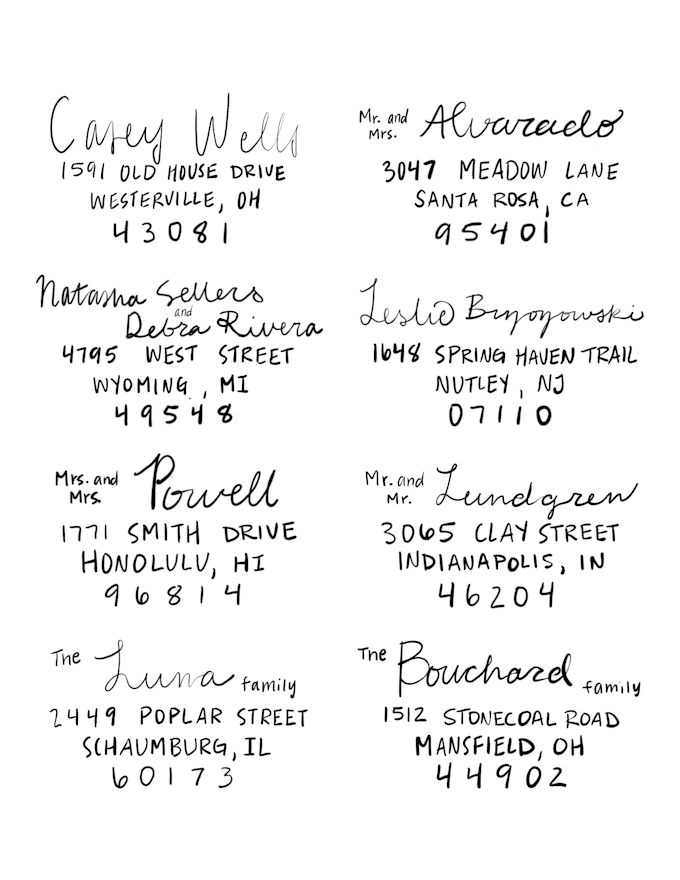 Casey Wells
1591 OLD HOUSE DRIVE
WESTERVILLE, OH
43081
Mr. and Mrs. Alvarado
3047 MEADOW LANE
SANTA ROSA, CA
95401
Natasha Sellers
and
Debra Rivera
4795 WEST STREET
WYOMING, MI
49548
Leslie Bryoyowski
1648 SPRING HAVEN TRAIL
NUTLEY, NJ
07110
Mrs. and Mrs. Powell
1771 SMITH DRIVE
HONOLULU, HI
96814
Mr. and Mr. Lundgren
3065 CLAY STREET
INDIANAPOLIS, IN
46204
The Luna family
2449 POPLAR STREET
SCHAUMBURG, IL
60173
The Bouchard family
1512 STONECOAL ROAD
MANSFIELD, OH
44902